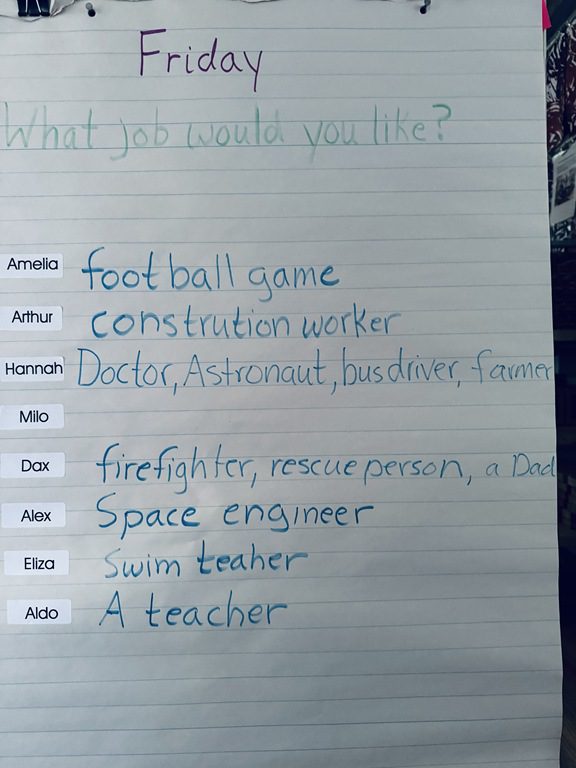 Friday
What job would you like?
Amelia football game
Arthur constrution worker
Hannah Doctor, Astronaut, bus driver, farmer
Milo
Dax firefighter, rescue person, a Dad
Alex Space engineer
Eliza Swim teaher
Aldo A teacher